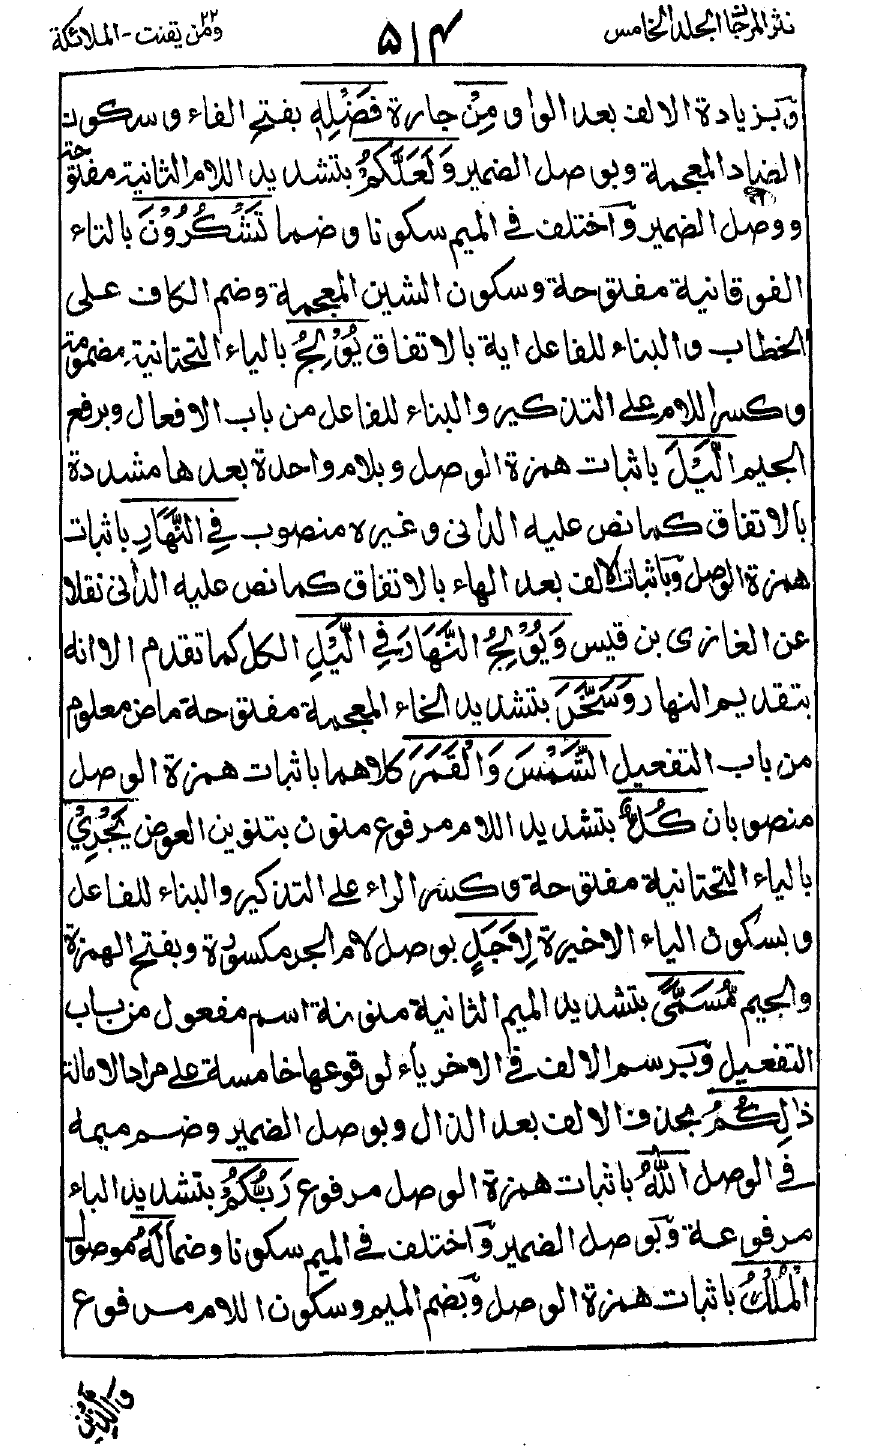 نثر المرجان الجلد الخامس
٥١٤
ومن يقنت ٢٢ - الملائكة
وّبزيادة الالف بعد الواو مِنْ جارة فَضْلِهٖ بفتح الفاء وسكون
الضاد المعجمة وبوصل الضمير وَلَعَلَّكُمْ بتشديد اللام الثانية مفتوحة
ووصل الضمير وّاختلف في الميم سكونا وضما تَشْكُرُوْنَ بالتاء
الفوقانية مفتوحة وسكون الشين المعجمة وضم الكاف على
الخطاب والبناء للفاعل اية بالاتفاق يُوْلِجُ بالياء التحتانية مضمومة
وكسر اللام على التذكير والبناء للفاعل من باب الافعال وبرفع
الجيم الَّيْلَ باثبات همزة الوصل وبلام واحدة بعدها مشددة
بالاتفاق كما نص عليه الداني وغيره منصوب فِي النَّهَارِ باثبات
همزة الوصل وّباثبات الالف بعد الهاء بالاتفاق كما نص عليه الداني نقلا
عن الغازى بن قيس وَيُوْلِجُ النَّهَارَ فِي الَّيْلِ الكل كما تقدم الا انه
بتقديم النهار وَسَخَّرَ بتشديد الخاء المعجمة مفتوحة ماض معلوم
من باب التفعيل الشَّمْسَ وَالْقَمَرَ كلاهما باثبات همزة الوصل
منصوبان كُلٌّ بتشديد اللام مرفوع منون بتنوين العوض يَّجْرِيْ
بالياء التحتانية مفتوحة وكسر الراء على التذكير والبناء للفاعل
وبسكون الياء الاخيرة لِاَجَلٍ بوصل لام الجر مكسورة وبفتح الهمزة
والجيم مُّسَمًّى بتشديد الميم الثانية منونة اسم مفعول من باب
التفعيل وّبرسم الالف في الاخر ياء لوقوعها خامسة على مراد الامالة
ذٰلِكُمُ بحذف الالف بعد الذال وبوصل الضمير وضم ميمه
في الوصل اللّٰهُ باثبات همزة الوصل مرفوع رَبُّكُمْ بتشديد الباء
مرفوعة وّبوصل الضمير وّاختلف في الميم سكونا وضما لَهُ موصول
الْمُلْكُ باثبات همزة الوصل وّبضم الميم وسكون اللام مرفوع
والذين